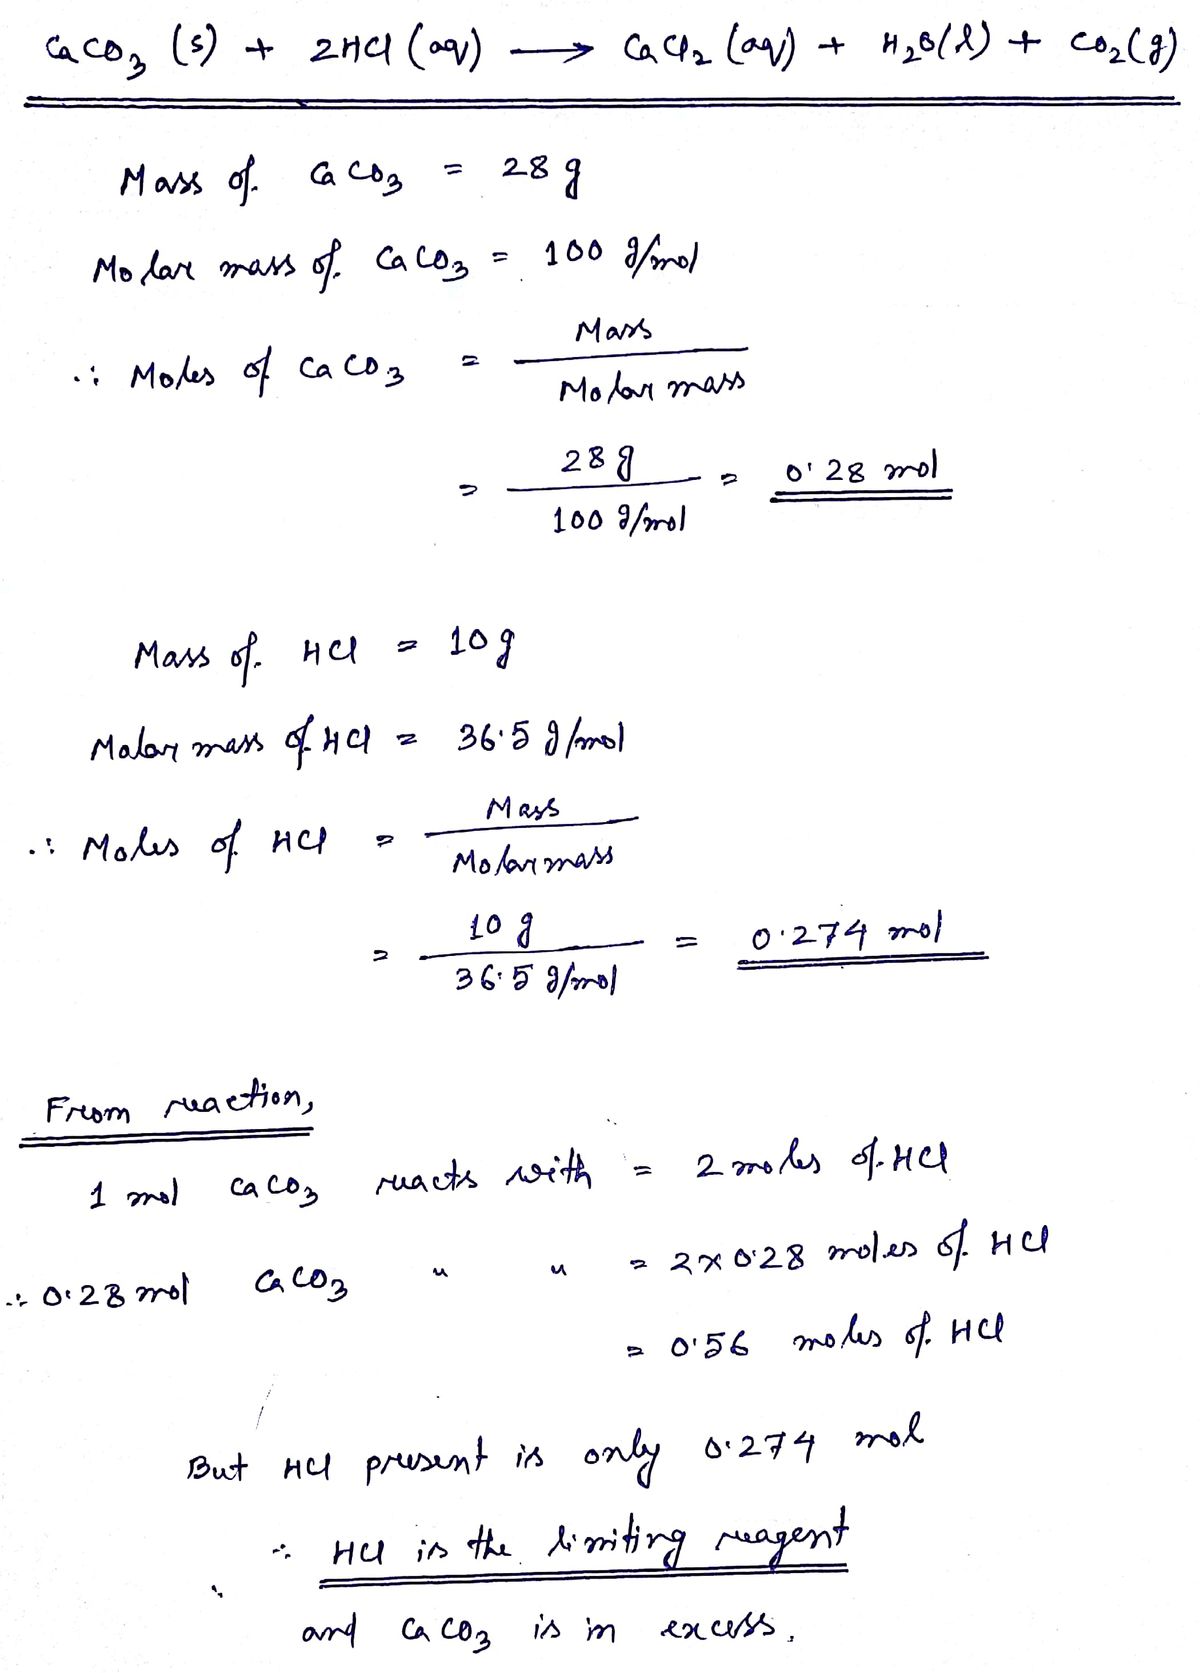 CaCO3 (s) + 2HCl (aq) → CaCl2 (aq) + H2O(l) + CO2(g)
Mass of CaCO3 = 28 g
Molar mass of CaCO3 = 100 g/mol
∴ Moles of CaCO3 = Mass / Molar mass
= 28 g / 100 g/mol = 0.28 mol
Mass of HCl = 10 g
Molar mass of HCl = 36.5 g/mol
∴ Moles of HCl = Mass / Molar mass
= 10 g / 36.5 g/mol = 0.274 mol
From reaction,
1 mol CaCO3 reacts with = 2 moles of HCl
∴ 0.28 mol CaCO3 " " = 2 × 0.28 moles of HCl
= 0.56 moles of HCl
But HCl present is only 0.274 mol
∴ HCl is the limiting reagent
and CaCO3 is in excess.